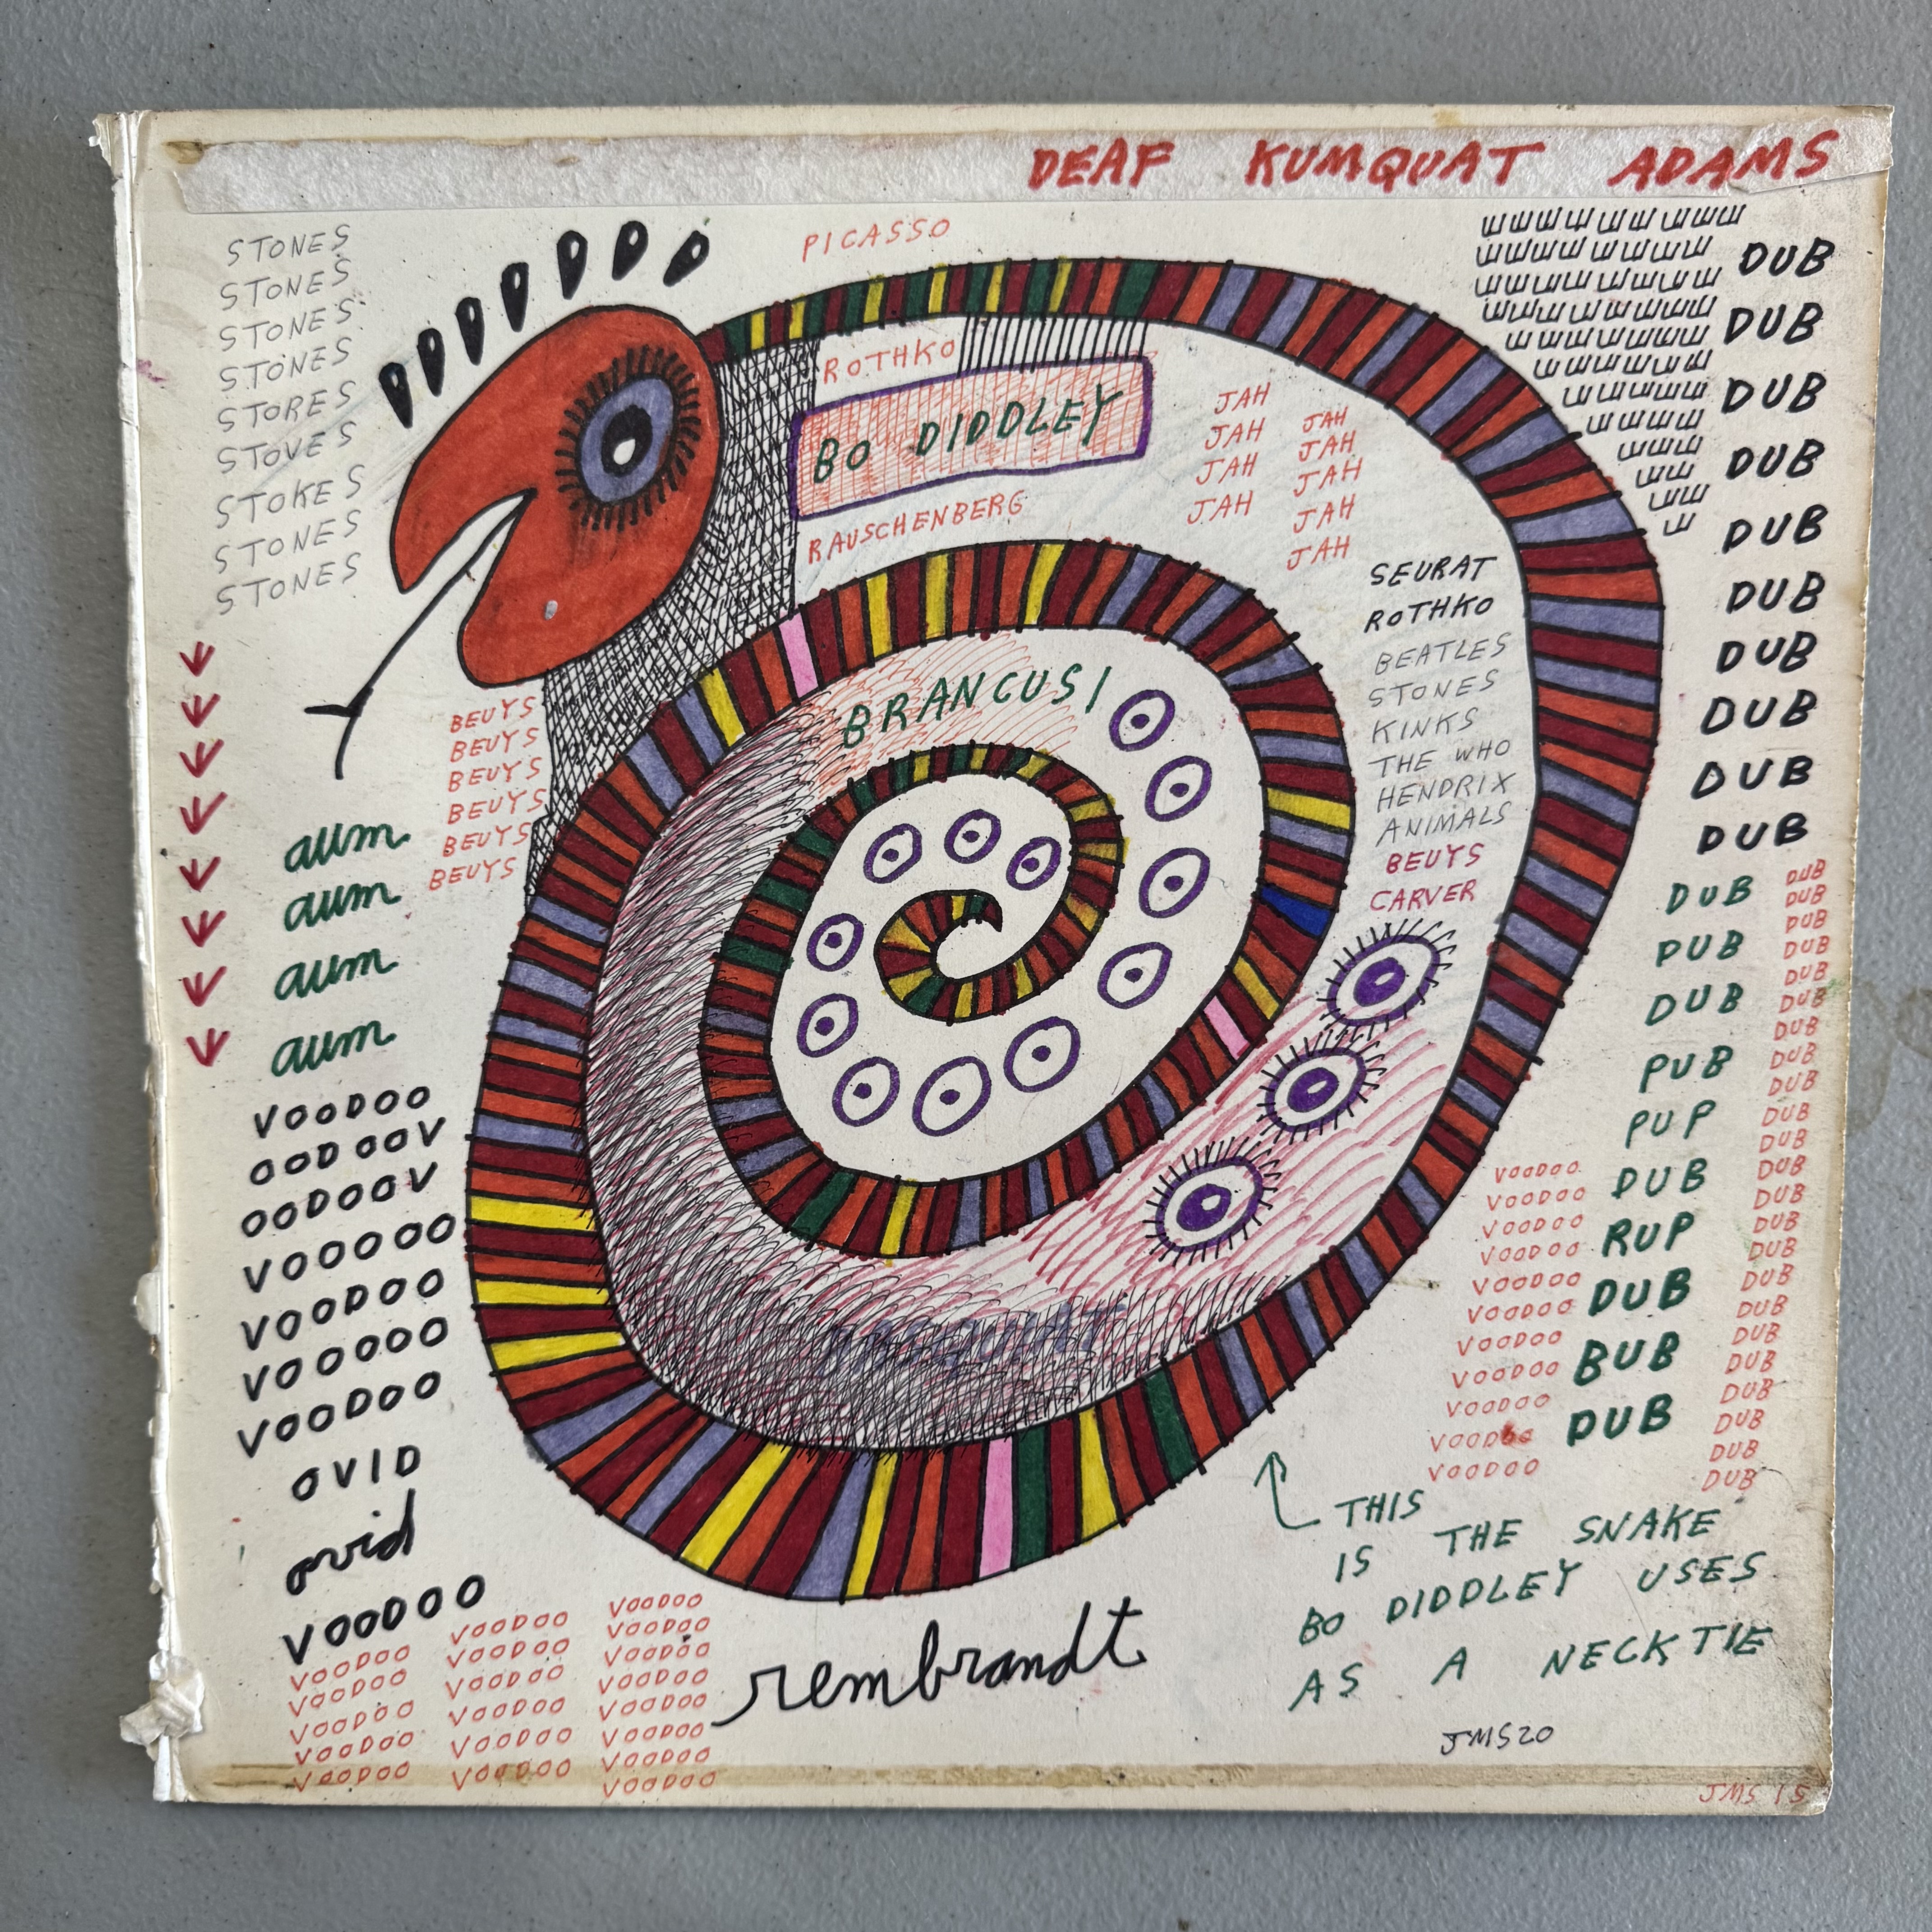 DEAF KUMQUAT ADAMS
STONES
STONES
STONES
STONES
STORES
STOVES
STOKES
STONES
STONES
PICASSO
ROTHKO
BO DIDDLEY
RAUSCHENBERG
JAH
JAH
JAH
JAH
JAH
JAH
JAH
JAH
JAH
SEURAT
ROTHKO
BEATLES
STONES
KINKS
THE WHO
HENDRIX
ANIMALS
BEUYS
CARVER
BRANCUSI
BEUYS
BEUYS
BEUYS
BEUYS
BEUYS
BEUYS
aum
aum
aum
aum
VOODOO
OODOOV
OODOOV
VOOOOO
VOODOO
VOOOOO
VOODOO
OVID
ovid
VOODOO
VOODOO
VOODOO
VOODOO
VOODOO
VOODOO
VOODOO
VOODOO
VOODOO
VOODOO
VOODOO
VOODOO
VOODOO
VOODOO
VOODOO
VOODOO
VOODOO
VOODOO
VOODOO
rembrandt
DUB
DUB
DUB
DUB
DUB
DUB
DUB
DUB
DUB
DUB
DUB
PUB
DUB
PUB
PUP
DUB
RUP
DUB
BUB
DUB
DUB
DUB
DUB
DUB
DUB
DUB
DUB
DUB
DUB
DUB
DUB
DUB
DUB
DUB
DUB
DUB
DUB
DUB
DUB
DUB
DUB
DUB
DUB
VOODOO
VOODOO
VOODOO
VOODOO
VOODOO
VOODOO
VOODOO
VOODOO
VOODOO
VOODOO
VOODOO
THIS
IS THE SNAKE
BO DIDDLEY USES
AS A NECKTIE
JMS20
JMS 15